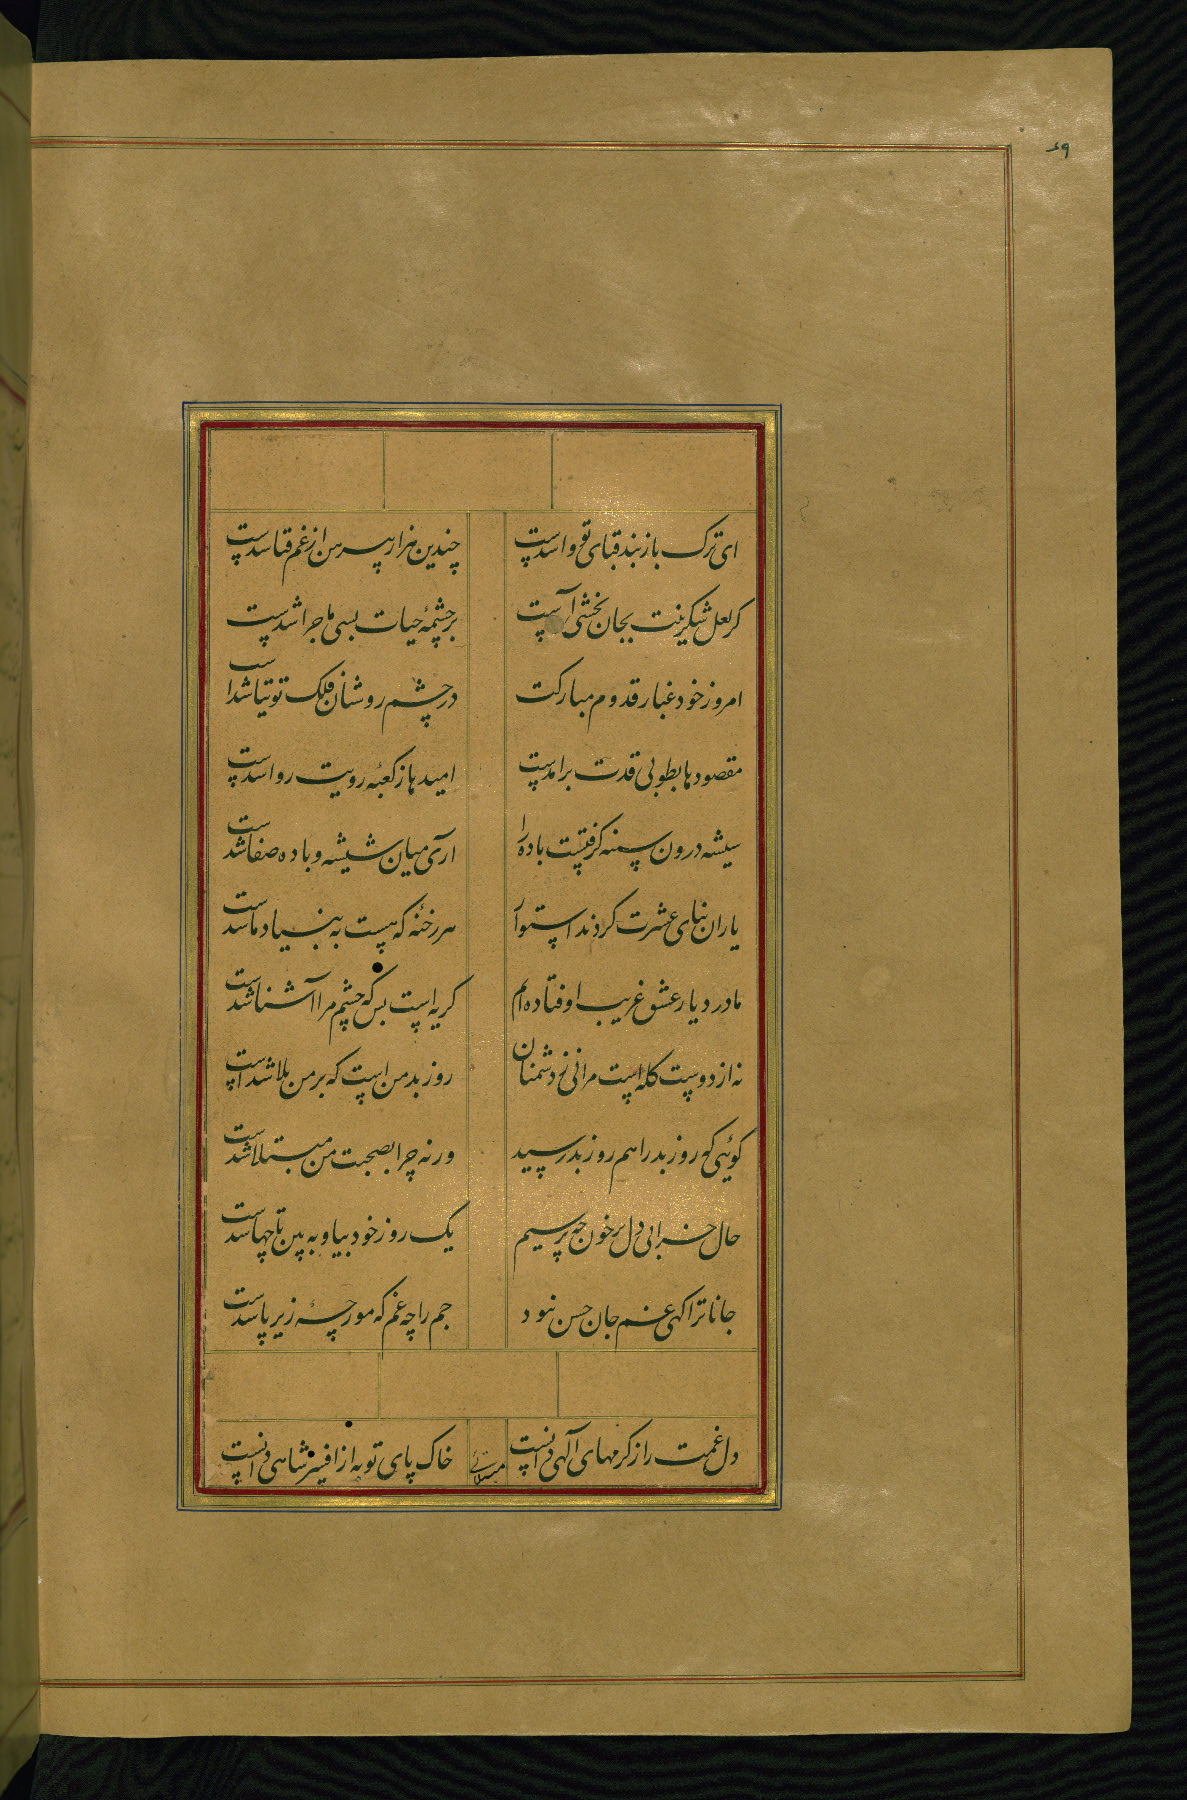 ۶۹
ای ترک باز بند قبای تو واشدست چندین هزار پیرهن از غم قبا شدست
کر لعل شکرینت بجان بخشی آمدست بر چشمهٔ حیات بسی ماجرا شدست
امروز خود غبار قدوم مبارکت در چشم روشنان فلک توتیا شدست
مقصودها بطوبی قدت برامدست امیدها ز کعبهٔ رویت روا شدست
شیشه درون سینه کرفتست باده را اری میان شیشه و باده صفا شدست
یاران بنای عشرت کردند استوار هر رخنه که هست به بنیاد ما شدست
ما در دیار عشق غریب اوفتاده‌ام کریه است بس که چشم مرا آشنا شدست
نه از دوست کله است مرا نی ز دشمنان روز بد من است که بر من بلا شدست
کوئی که روز بد را هم روز بد رسید ورنه چرا بصحبت من مبتلا شدست
حال خرابی دل پر خون چه پرسیم یک روز خود بیا و به بین تا چها شدست
جانا ترا کهی غم جان حسن نبود جم را چه غم که مورچهٔ زیر پا شدست
دل غمت را ز کرمهای الهی دانست خاک پای تو به از افسر شاهی دانست